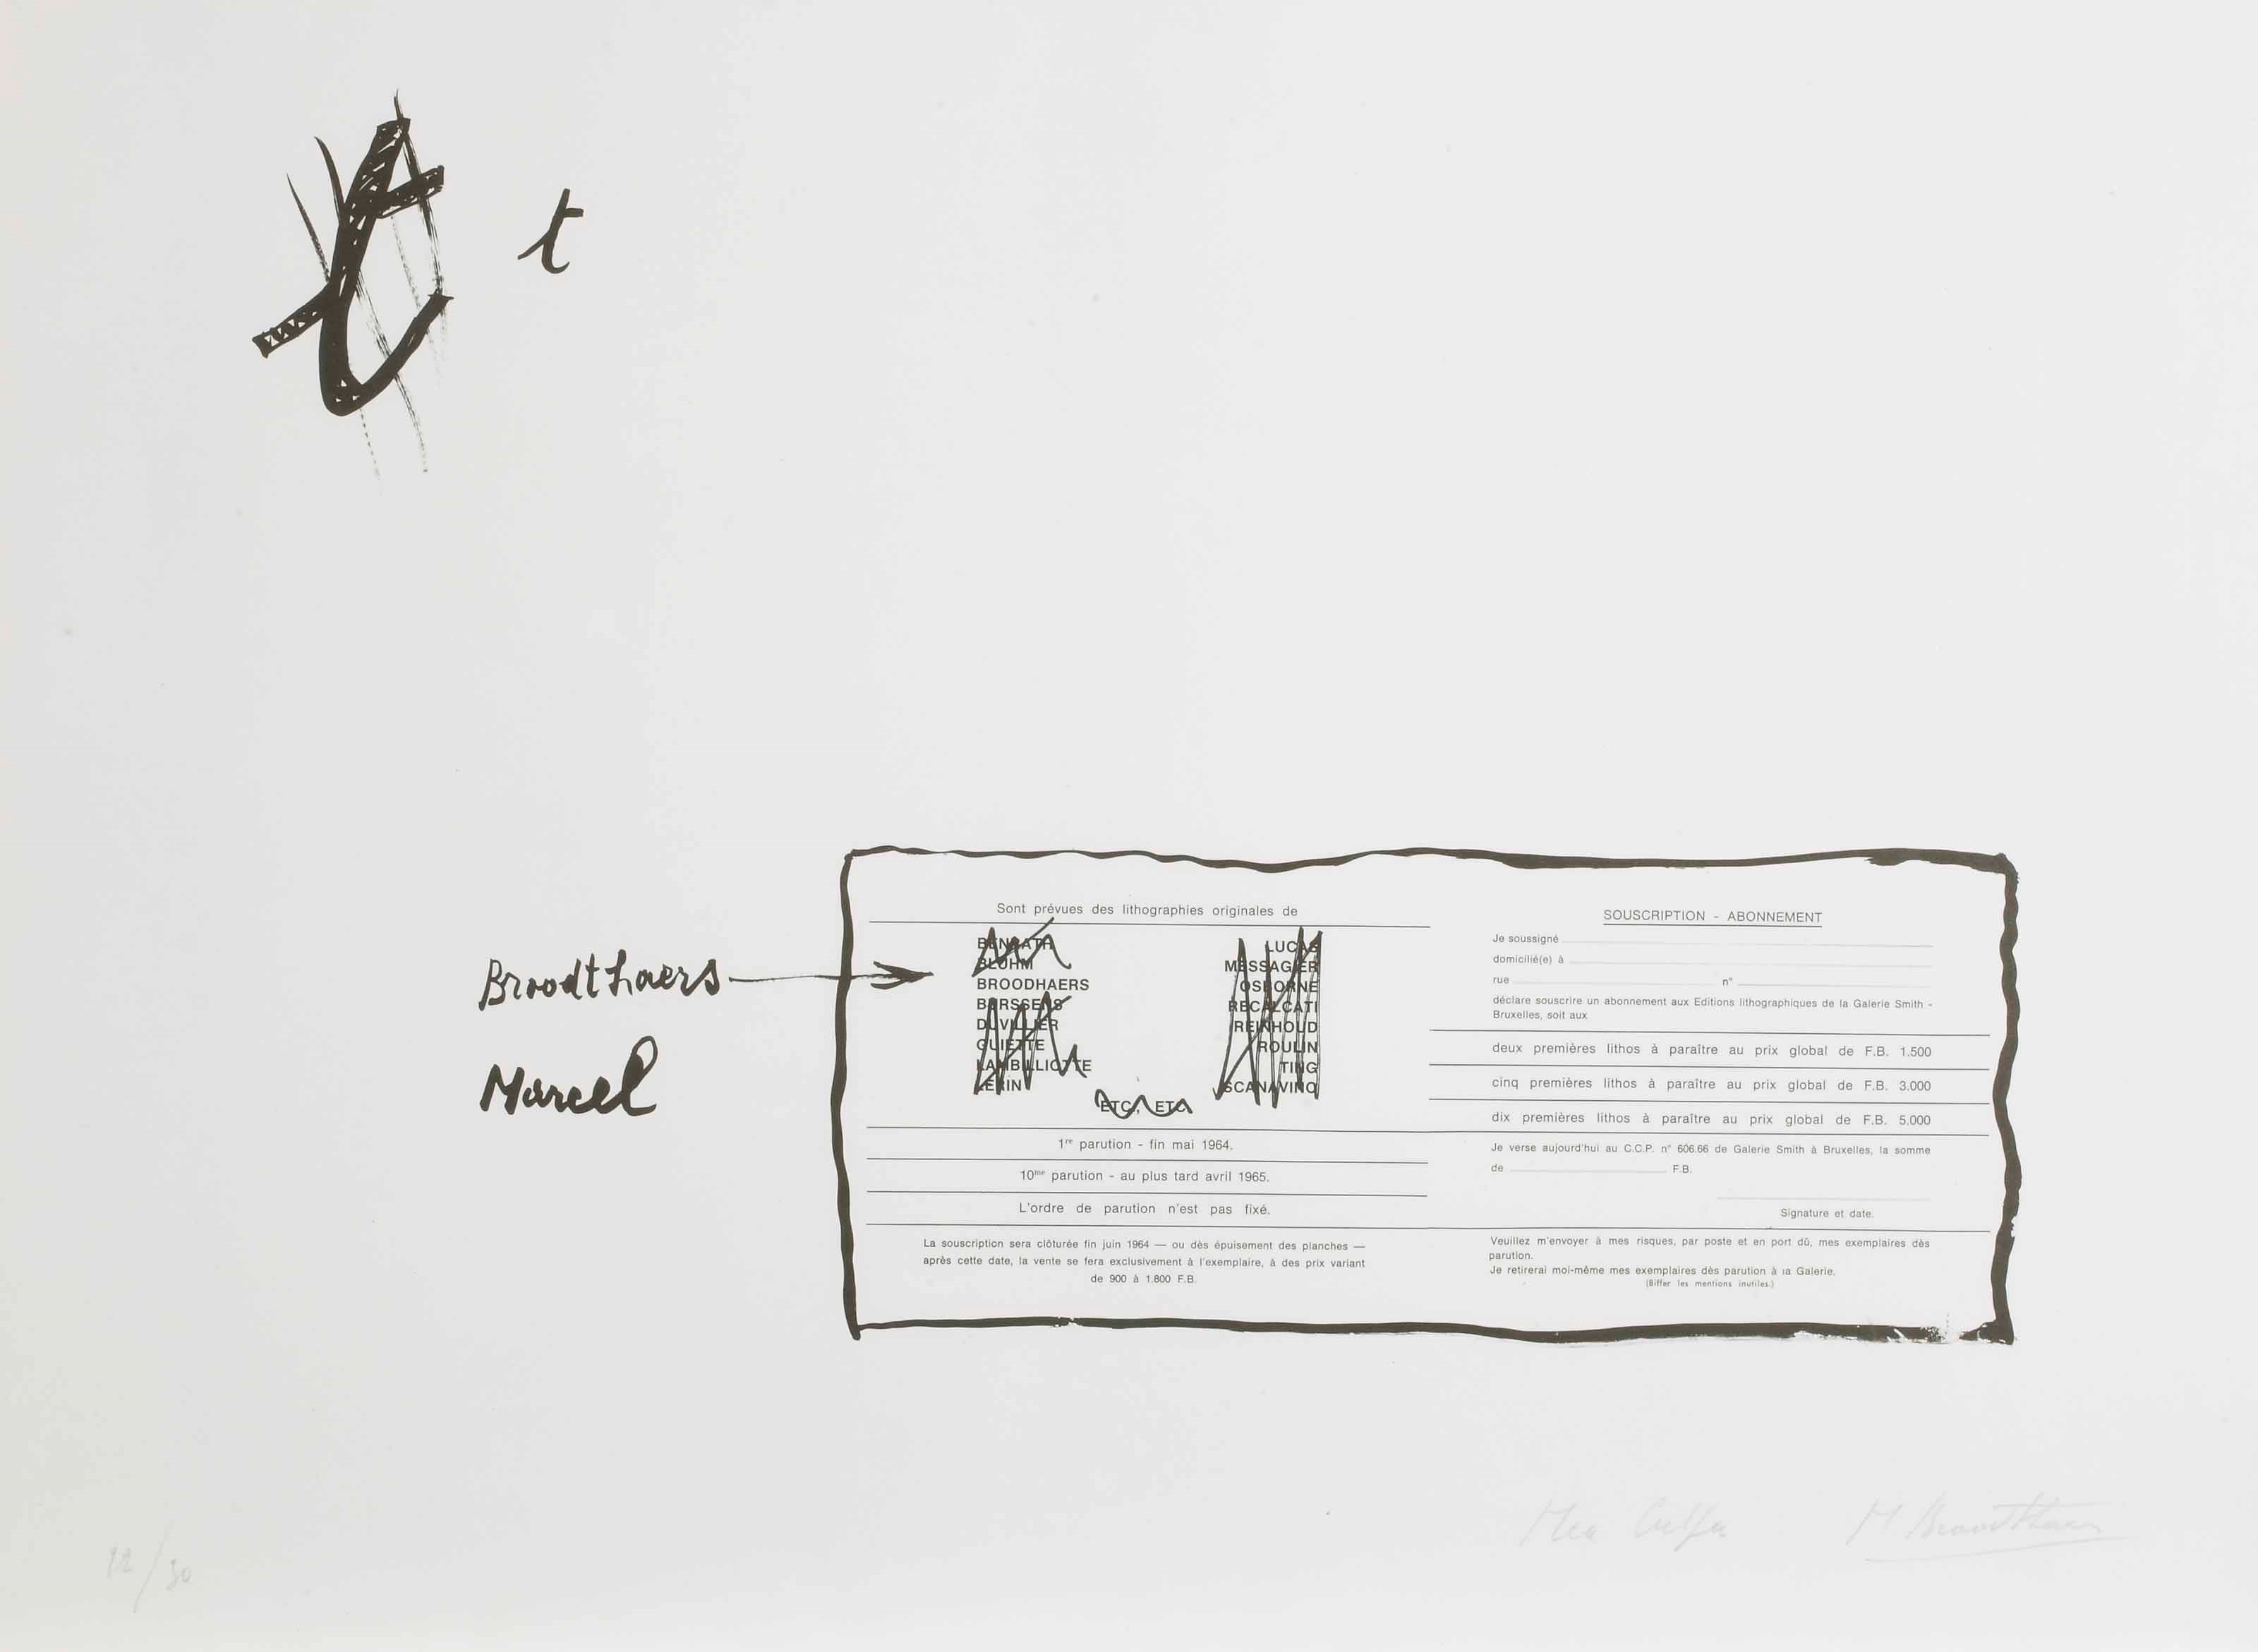 t t
Sont prévues des lithographies originales de
BENRATH
BLUHM
BROODHAERS
BURSSENS
DUVILLIER
GUIETTE
LAMBILLIOTTE
LERIN
LUCAS
MESSAGIER
OSBORNE
RECALCATI
REINHOUD
ROULIN
TING
SCANAVINO
ETC, ETC.
1re parution - fin mai 1964.
10me parution - au plus tard avril 1965.
L'ordre de parution n'est pas fixé.
La souscription sera clôturée fin juin 1964 — ou dès épuisement des planches —
après cette date, la vente se fera exclusivement à l'exemplaire, à des prix variant
de 900 à 1.800 F.B.
Broodthaers
Marcel
SOUSCRIPTION - ABONNEMENT
Je soussigné
domicilié(e) à
rue n°
déclare souscrire un abonnement aux Editions lithographiques de la Galerie Smith -
Bruxelles, soit aux
deux premières lithos à paraître au prix global de F.B. 1.500
cinq premières lithos à paraître au prix global de F.B. 3.000
dix premières lithos à paraître au prix global de F.B. 5.000
Je verse aujourd'hui au C.C.P. n° 606.66 de Galerie Smith à Bruxelles, la somme
de F.B.
Signature et date.
Veuillez m'envoyer à mes risques, par poste et en port dû, mes exemplaires dès
parution.
Je retirerai moi-même mes exemplaires dès parution à la Galerie.
(Biffer les mentions inutiles.)
Mea Culpa M Broodthaers
12/30